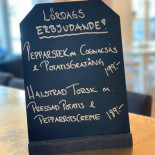 LÖRDAGS
ERBJUDANDE!
PEPPARSTEK M COGNACSÅS
& POTATISGRATÄNG
199:-
HALSTRAD TORSK M
PRESSAD POTATIS &
PEPPARROTSCREME 199:-